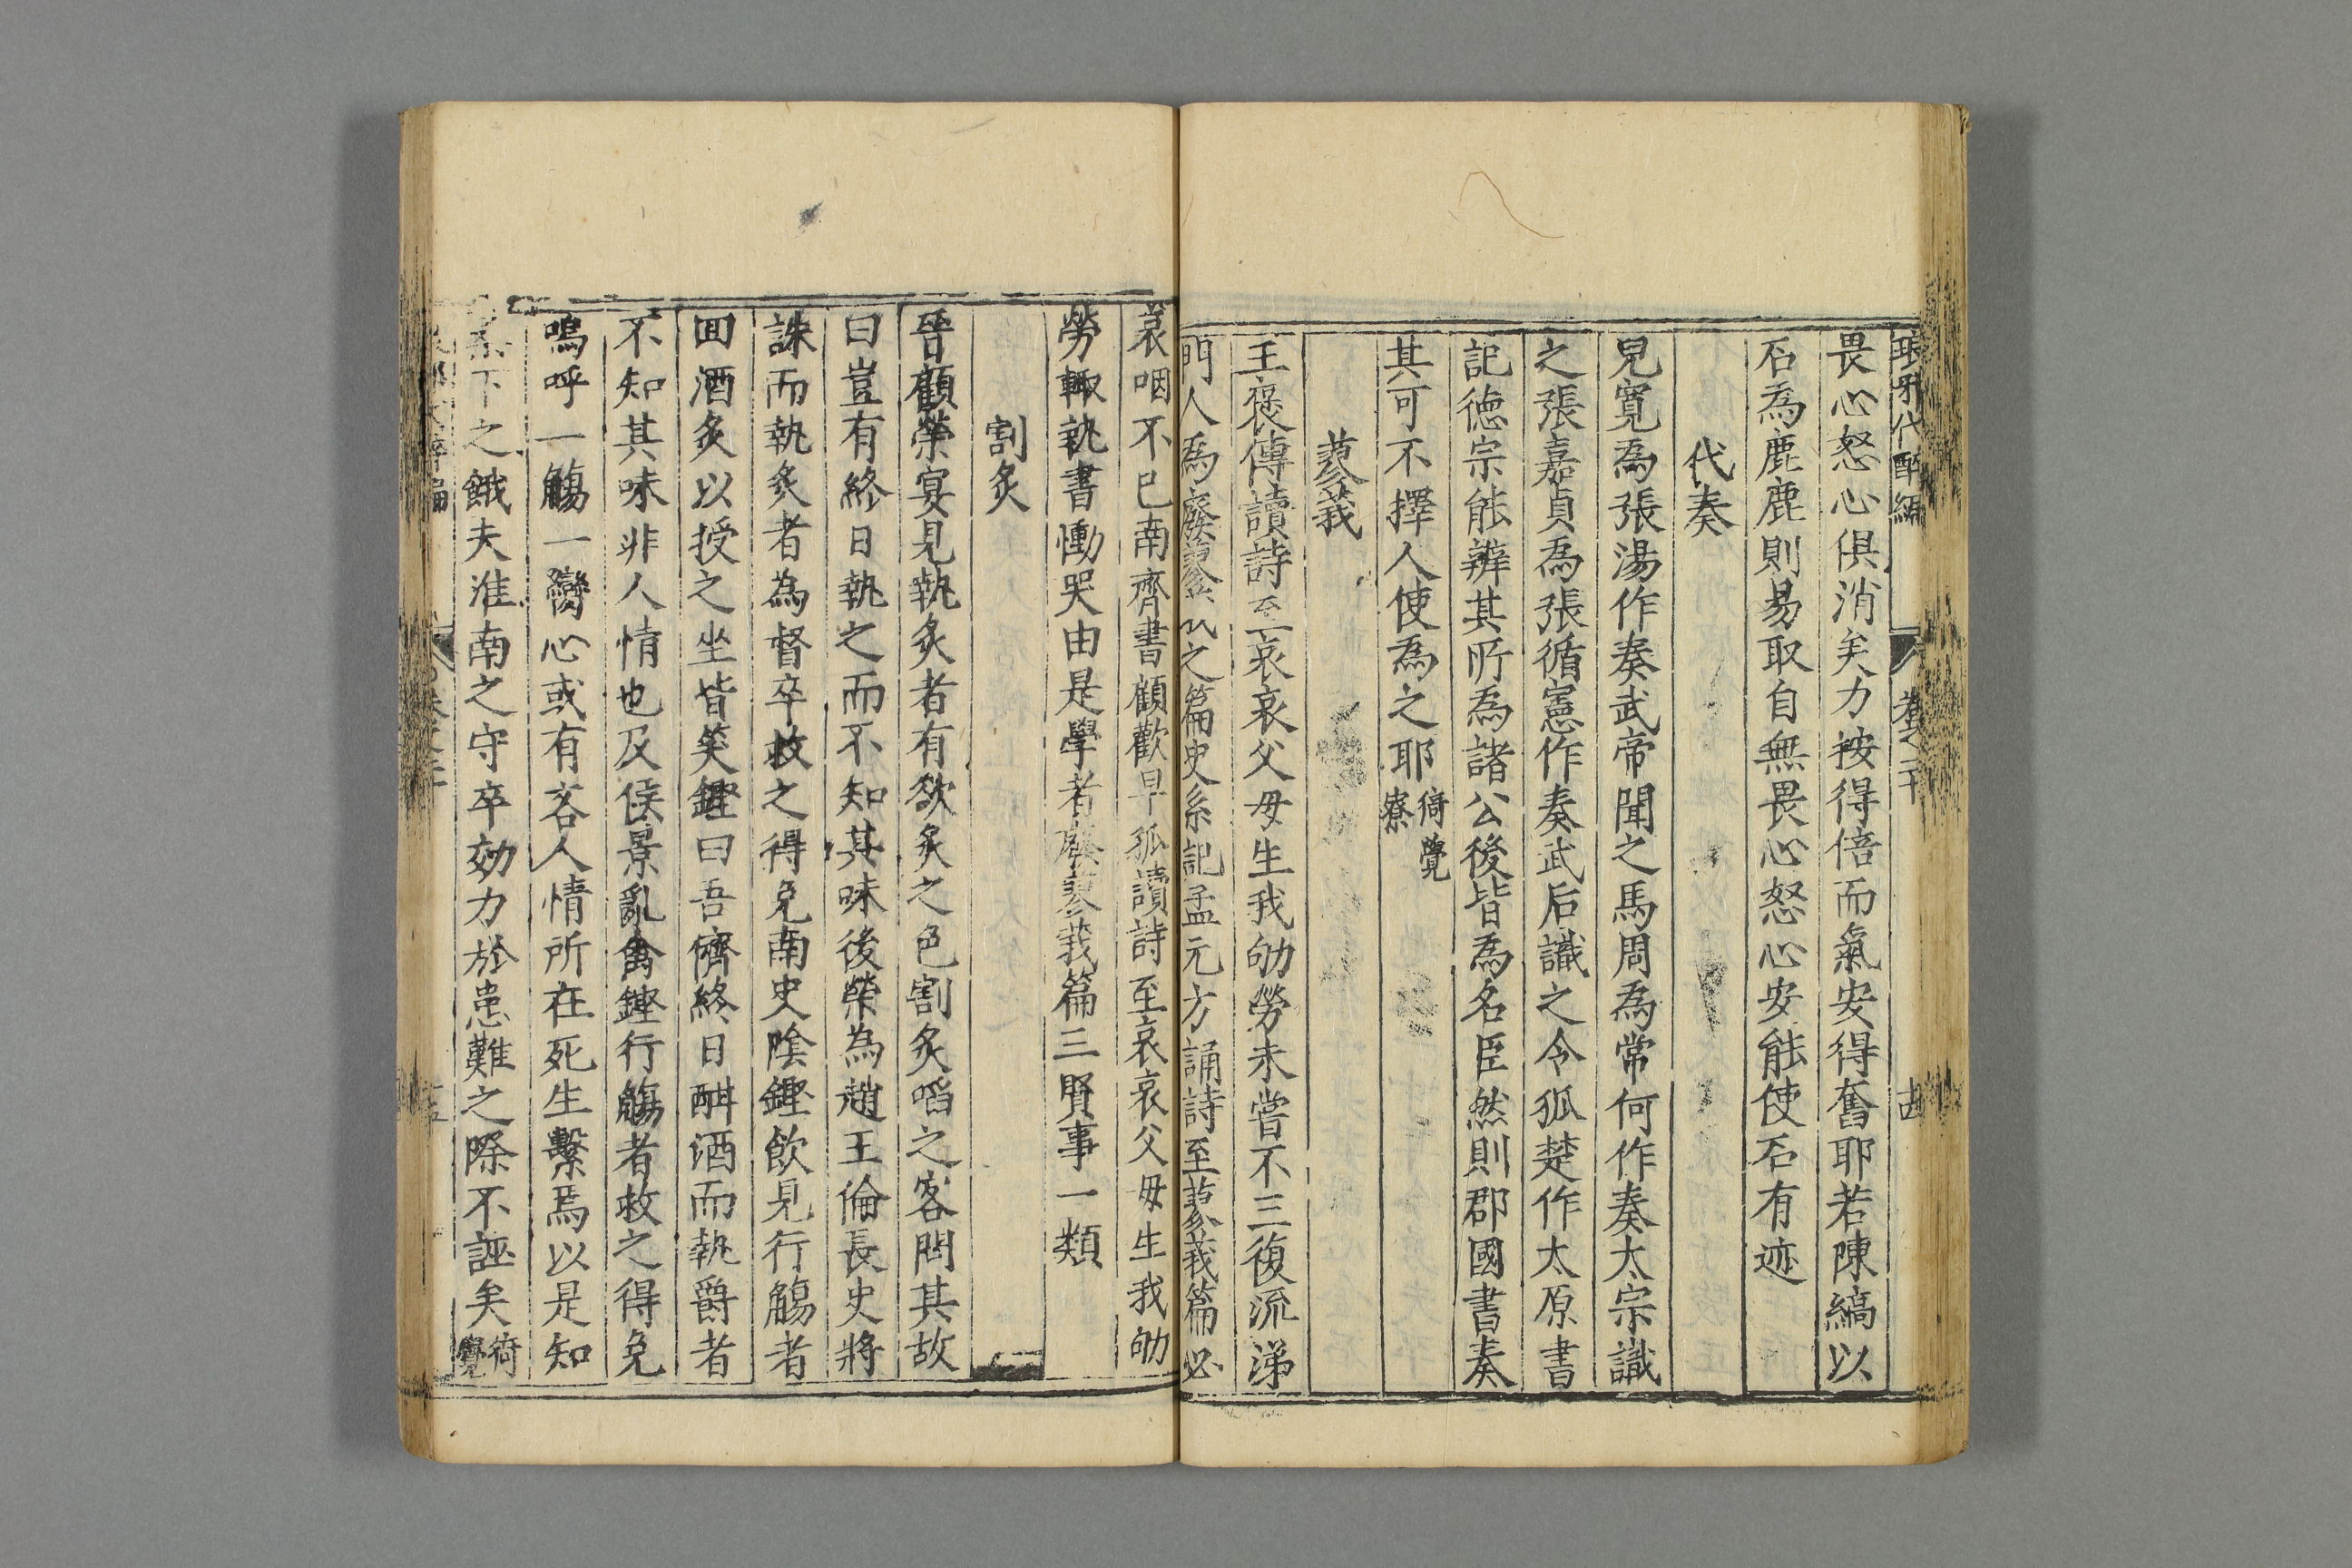 琅邪代醉編 卷之二十 十四
畏心怒心俱消矣力按得倍而氣安得奮耶若陳縞以
石為鹿鹿則易取自無畏心怒心安能使石有迹
代奏
兒寬為張湯作奏武帝聞之馬周為常何作奏太宗識
之張嘉貞為張循憲作奏武后識之令狐楚作太原書
記德宗能辨其所為諸公後皆為名臣然則郡國書奏
其可不擇人使為之耶 倚覺寮
蓼莪
王裒傳讀詩至哀哀父母生我劬勞未嘗不三復流涕
門人為廢蓼莪之篇史系記孟元方誦詩至蓼莪篇必
哀咽不已南齊書顧歡早孤讀詩至哀哀父母生我劬
勞輙執書慟哭由是學者廢蓼莪篇三賢事一類
割炙
晉顧榮宴見執炙者有欲炙之色割炙啗之客問其故
曰豈有終日執之而不知其味後榮為趙王倫長史將
誅而執炙者為督卒救之得免南史陰鏗飲見行觴者
回酒炙以授之坐皆笑鏗曰吾儕終日酣酒而執爵者
不知其味非人情也及侯景亂禽鏗行觴者救之得免
嗚呼一觴一臠心或有吝人情所在死生繫焉以是知
下之餓夫淮南之守卒効力於患難之際不誣矣 倚覺